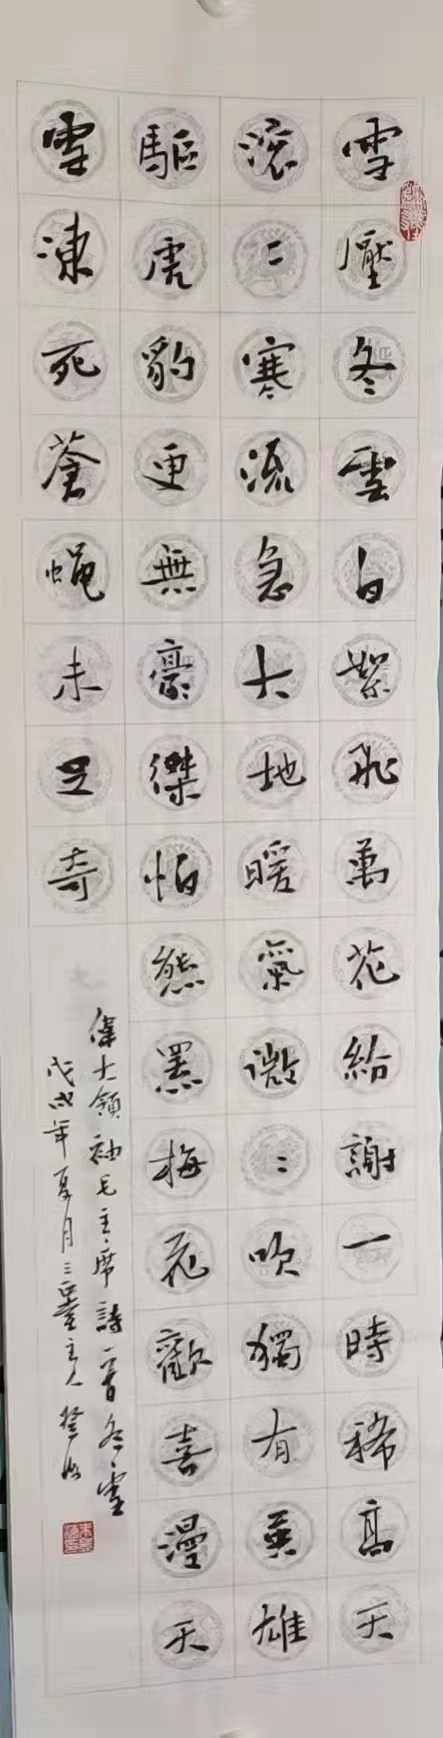 雪壓冬雲白絮飛萬花給謝一時稀高天
滚〻寒流急大地暖氣微〻吹獨有英雄
驅虎豹更無豪傑怕熊羆梅花歡喜漫天
雪凍死蒼蠅未足奇
偉大領袖毛主席詩一首冬雲
戊戌年夏月三主人